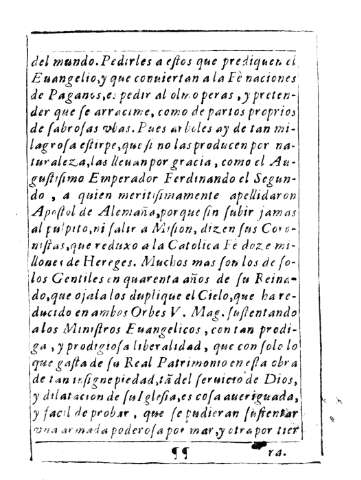 del mundo. Pedirles a eſtos que prediquen el
Euangelio, y que conuiertan a la Fè naciones
de Paganos, es pedir al olmo peras, y preten-
der que ſe arracime, como de partos proprios
de ſabroſas vbas. Pues arboles ay de tan mi-
lagroſa eſtirpe, que ſi no las producen por na-
turaleza, las lleuan por gracia, como el Au-
guſtiſimo Emperador Ferdinando el Segun-
do, a quien meritiſimamente apellidaron
Apoſtol de Alemaña, porque ſin ſubir jamas
al pulpito, ni ſalir a Miſion, dizen ſus Coro-
niſtas, que reduxo a la Catolica Fè doze mi-
llones de Hereges. Muchos mas ſon los de ſo-
los Gentiles en quarenta años de ſu Reina-
do, que ojala los duplique el Cielo, que ha re-
ducido en ambos Orbes V. Mag. ſuſtentando
a los Miniſtros Euangelicos, con tan prodi-
ga, y prodigioſa liberalidad, que con ſolo lo
que gaſta de ſu Real Patrimonio en eſta obra
de tan inſigne piedad, tã del ſeruicio de Dios,
y dilatacion de ſu Igleſia, es coſa aueriguada,
y facil de probar, que ſe pudieran ſuſtentar
vna armada poderoſa por mar, y otra por tier
¶¶ ra.